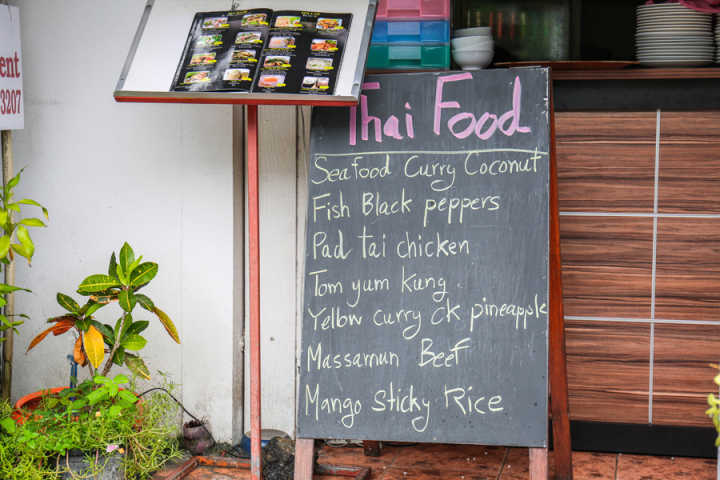 ent
3207
Thai Food
Seafood Curry Coconut
Fish Black peppers
Pad tai chicken
Tom yum Kung
Yellow curry ck pineapple
Massamun Beef
Mango Sticky Rice